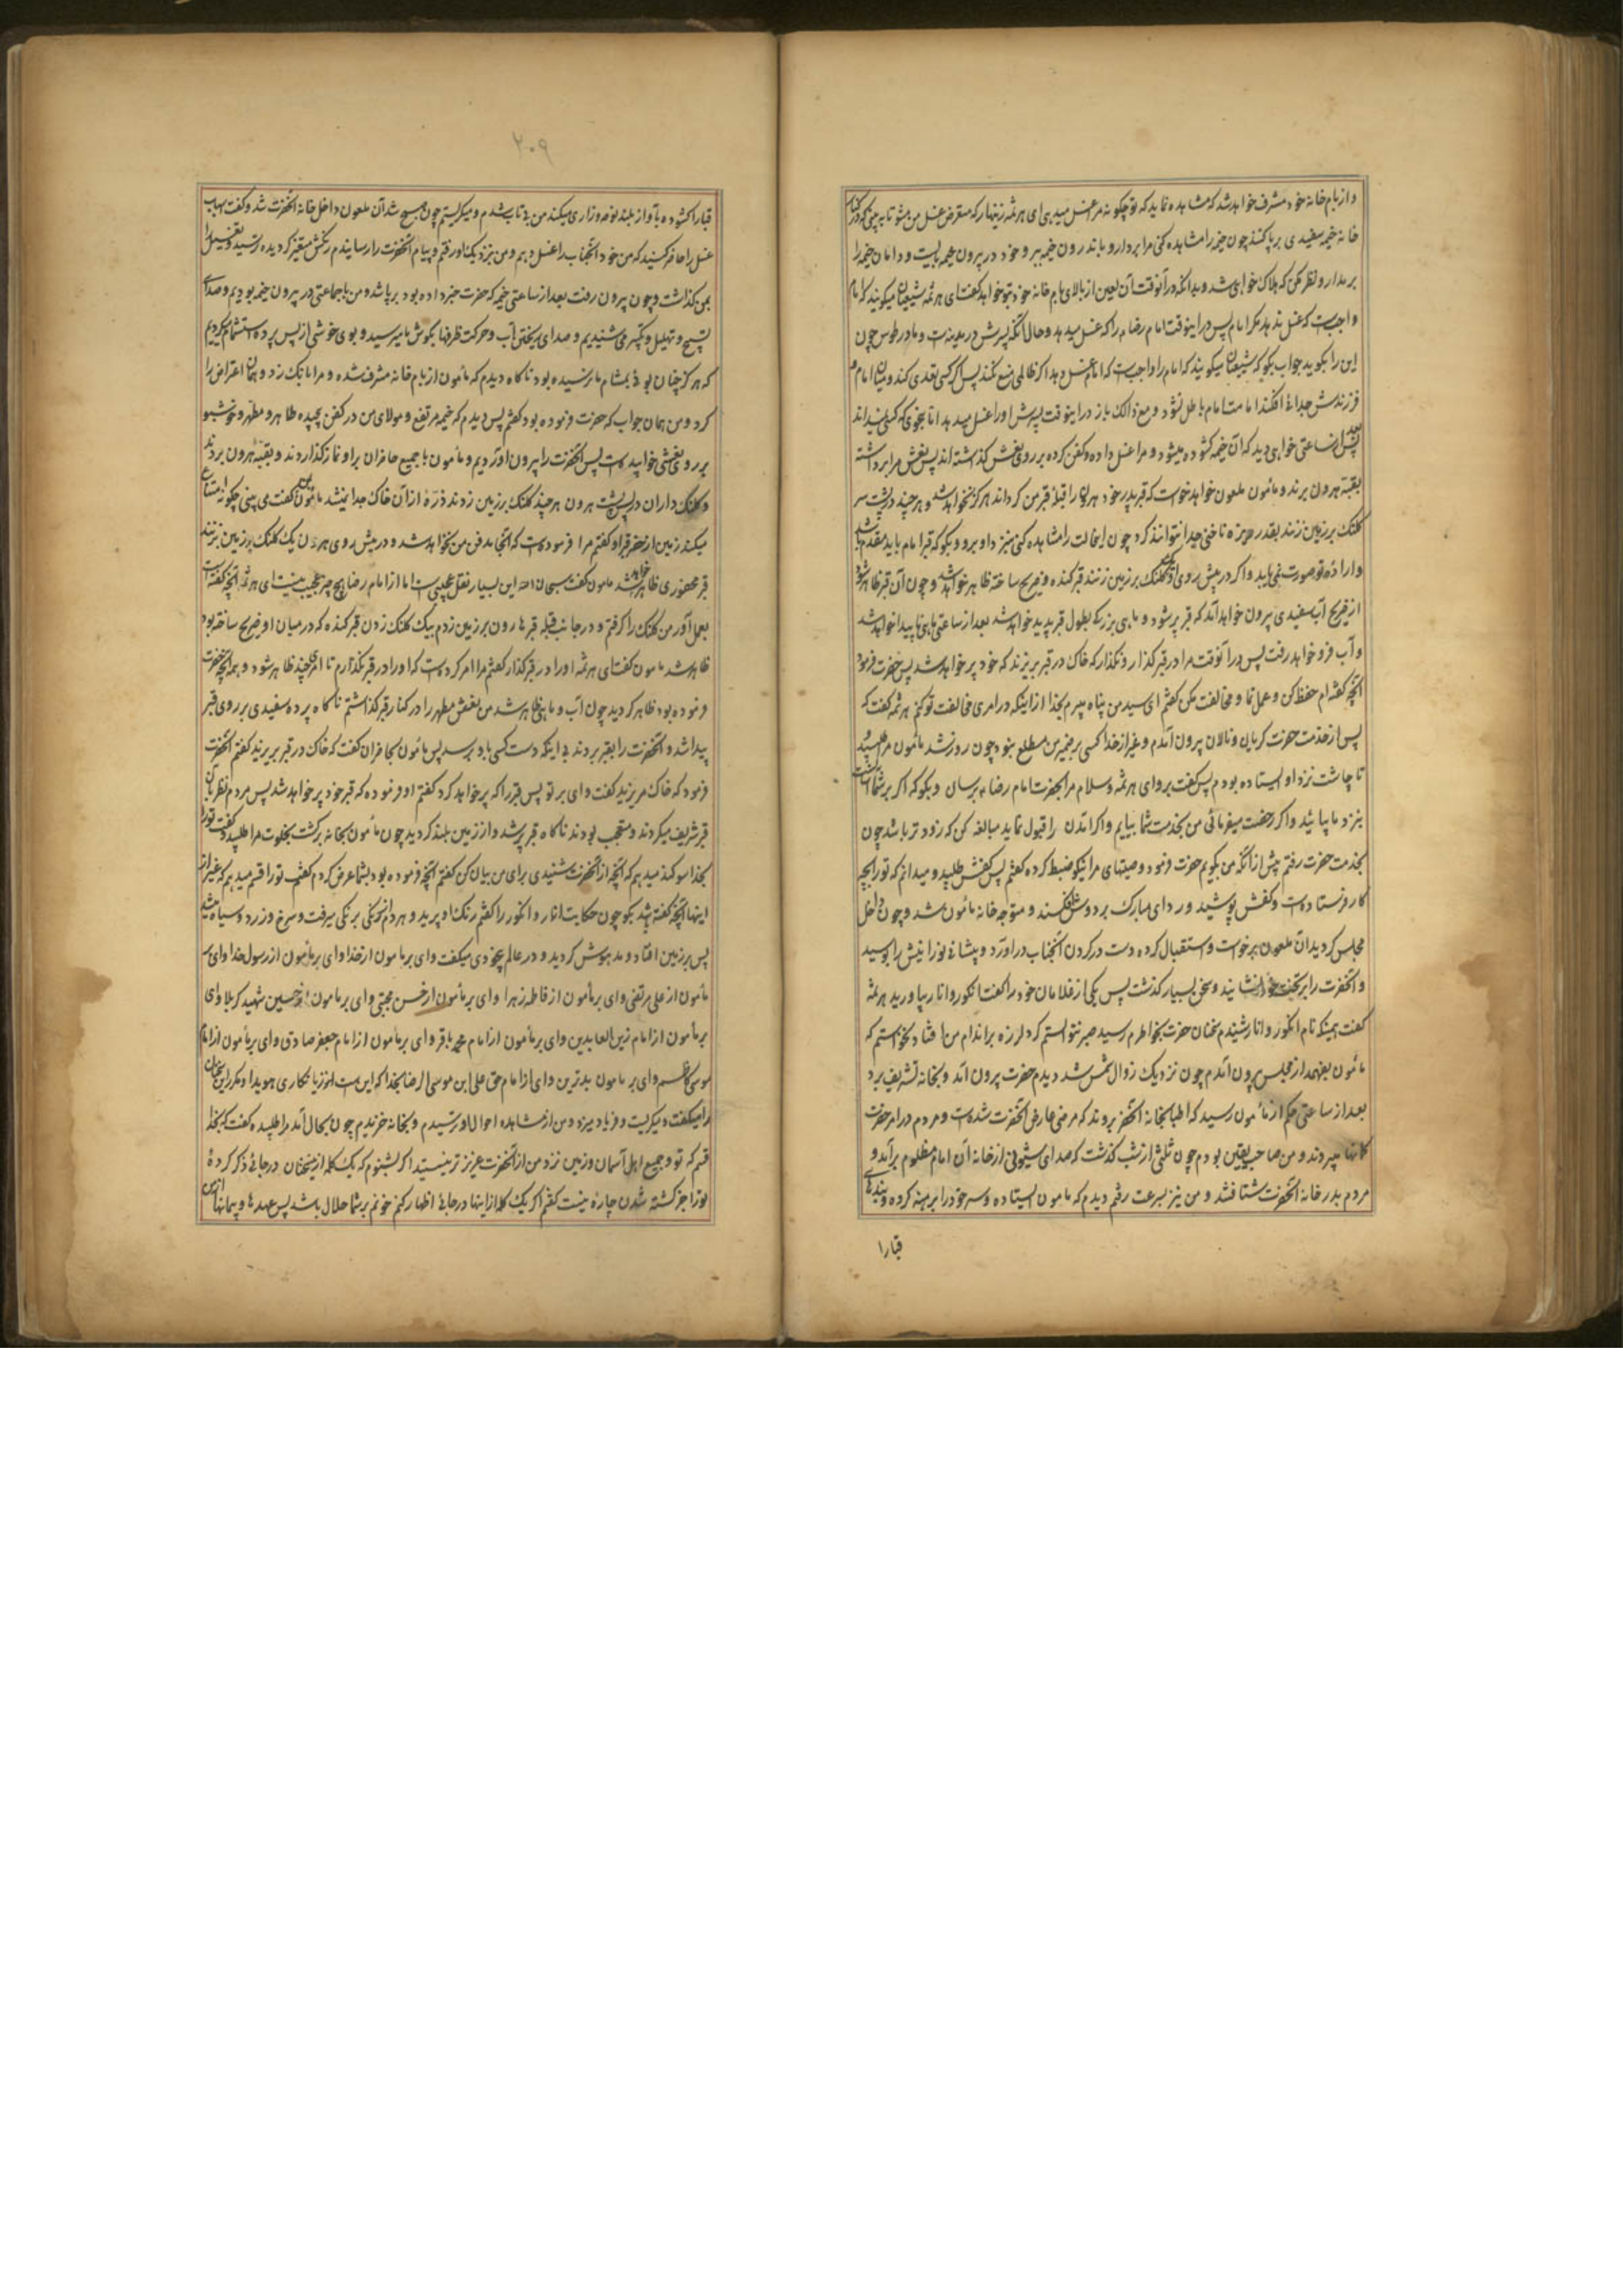 و از بام خانه خود مشرف خواهد شد که مشاهده نماید که تو چگونه مرا غسل میدهی ای هرثمه زینهار که متعرض غسل من مشو تا به بینی که در کنار
خانه خیمه سفیدی برپا کنند چون خیمه را مشاهده کنی مرا بردار و باندرون خیمه ببر و خود در بیرون خیمه بایست و دامان خیمه را
بر مدار و نظر مکن که هلاک خواهی شد و بدانکه در آنوقت آن لعین از بالای بام خانه خود بتو خواهد گفت ای هرثمه شیعیان میگویند که امام
واجبست که غسل ندهد مگر امام پس در اینوقت امام رضا را که غسل میدهد و حال آنکه پسرش در مدینه است و ما در طوس چون
این را بگوید جواب بگو که شیعیان میگویند که امام را واجبست که امام غسل دهد اگر ظالمی منع نکند پس اگر کسی تعدی کند و میان امام و
فرزندش جدائی افکند امامت امام باطل نشود و مع ذالک باز در اینوقت پسرش او را غسل میدهد اما بنحوی که کسی نمیداند
پس بعد از ساعتی خواهی دید که آن خیمه گشوده میشود و مرا غسل داده و کفن کرده بر روی نعش گذاشته اند پس نعش مرا برداشته
بقبه هرون برند و مأمون ملعون خواهد خواست که قبر پدر خود هرون را قبله قبر من گرداند هرگز نخواهد شد و هر چند در پشت سر
کلنگ بر زمین زنند بقدر ریزه ناخنی جدا نتوانند کرد چون این حالت را مشاهده کنی نزد او برو و بگو که قبر امام باید مقدم باشد
و اراده تو صورت نمی یابد و اگر در پیش روی او یک کلنگ بر زمین زنند قبر کنده و ضریح ساخته ظاهر خواهد شد و چون آن قبر ظاهر شود
از ضریح آب سفیدی بیرون خواهد آمد که قبر پر شود و ماهی بزرگی بطول قبر پدید خواهد شد بعد از ساعتی ماهی ناپیدا خواهد شد
و آب فرو خواهد رفت پس در آنوقت مرا در قبر گذار و نگذار که خاک در قبر بریزند که خود پر خواهد شد پس حضرت فرمود
آنچه گفته ام حفظ کن و عمل نما و مخالفت مکن گفتم ای سید من پناه میبرم بخدا از اینکه در امری مخالفت تو کنم هرثمه گفت که
پس از خدمت حضرت گریان و نالان بیرون آمدم و غیر از خدا کسی بر ضمیر من مطلع نبود چون روز شد مأمون مرا طلبید
تا چاشت نزد او ایستاده بودم پس گفت برو ای هرثمه و سلام مرا بحضرت امام رضا برسان و بگو که اگر بر شما آسانست
بنزد ما بیائید و اگر رخصت میفرمائی من بخدمت شما بیایم و اگر آمدن را قبول نماید مبالغه کن که زودتر باشد چون
بخدمت حضرت رفتم پیش از آنکه من بگویم حضرت فرمود وصیتهای مرا نیکو ضبط کرده گفتم پس کفش طلبید و میدانم که تو را بچه
کار فرستاده است و کفش پوشید و ردای مبارک بر دوش افکند و متوجه خانه مأمون شد و چون داخل
مجلس گردید آن ملعون برخواست و استقبال کرده دست در گردن آنجناب درآورد و پیشانی نورانیش را بوسید
و آنحضرت را بر تخت خود نشانید و سخن بسیار گذشت پس یکی از غلامان خود را گفت انگور و انار بیاورید هرثمه
گفت همینکه نام انگور و انار شنیدم سخنان حضرت بخاطرم رسید صبر نتوانستم کرد لرزه بر اندام من افتاد نخواستم که
مأمون بفهمد از مجلس بیرون آمدم چون نزدیک زوال شمس شد دیدم حضرت بیرون آمد و بخانه تشریف برد
بعد از ساعتی حکم از مأمون رسید که اطبا بخانه آنحضرت بروند که مرضی عارض آنحضرت شده است و مردم در امر حضرت
گمانها میبردند و من صاحب یقین بودم چون ثلثی از شب گذشت که صدای شیون از خانه آن امام مظلوم برآمد و
مردم بدر خانه آنحضرت شتافتند و من نیز بسرعت رفتم دیدم که مامون ایستاده و سر خود را برهنه کرده و بندهای
قبا را
۲۰۹
قبا را گشوده بآواز بلند نوحه و زاری میکند من بی تاب شدم و میگریستم چون صبح شد آن ملعون داخل خانه آنحضرت شد و گفت اسباب
غسل را حاضر کنید که من خود آنجناب را غسل دهم و من نیز نزدیک او رفتم و پیام آنحضرت را رسانیدم رنگش متغیر گردیده ترسید و تغسیل را
بمن گذاشت و چون بیرون رفت بعد از ساعتی خیمه که حضرت خبر داده بود برپا شد و من با جماعتی در بیرون خیمه بودیم و صدای
تسبیح و تهلیل و تکبیر می شنیدیم و صدای ریختن آب و حرکت ظرفها بگوش ما میرسید و بوی خوشی از پس پرده استشمام میکردیم
که هرگز چنان بوئی بمشام ما نرسیده بود ناگاه دیدم که مأمون از بام خانه مشرف شده و مرا بانگ زد و همان اعتراض را
کرد و من همان جواب که حضرت فرموده بود گفتم پس دیدم که خیمه مرتفع و مولای من در کفن پیچیده طاهر و مطهر و خوشبو
بر روی نعشی خوابیده است پس آنحضرت را بیرون آوردیم و مأمون با جمیع حاضران بر او نماز گذاردند و بقبه هرون بردند
و کلنگ داران در پس پشت هرون هر چند کلنگ بر زمین زدند ذره از آن خاک جدا نمیشد مأمون گفت می بینی چگونه امتناع
میکند زمین از حفر قبر او گفتم مرا فرموده است که آنجا مدفن من نخواهد شد و در پیش روی هرون یک کلنگ بر زمین بزنند
قبر محفوری ظاهر خواهد شد مامون گفت سبحان الله این بسیار نقل عجیبی است اما از امام رضا هیچ چیز عجیب نیست ای هرثمه آنچه گفته است
بعمل آور من کلنگ را گرفتم و در جانب قبله قبر هارون بر زمین زدم بیک کلنگ زدن قبر کنده که در میان او ضریح ساخته بود
ظاهر شد مامون گفت ای هرثمه او را در قبر گذار گفتم مرا امر کرده است که او را در قبر نگذارم تا امری چند ظاهر شود و همه آنچه حضرت
فرموده بود ظاهر گردید چون آب و ماهی ظاهر شد من نعش مطهر را در کنار قبر گذاشتم ناگاه پرده سفیدی بر روی قبر
پیدا شد و آنحضرت را بقبر بردند بی اینکه دست کسی باو برسد پس مأمون بحاضران گفت که خاک در قبر بریزند گفتم آنحضرت
فرمود که خاک مریزید گفت وای بر تو پس قبر را که پر خواهد کرد گفتم او فرموده که قبر خود پر خواهد شد پس مردم نظر بآن
قبر شریف میکردند و متعجب بودند ناگاه قبر پر شد و از زمین بلند گردید چون مأمون بخانه برگشت بخلوت مرا طلبید و گفت تو را
بخدا سوگند میدهم که آنچه از آنحضرت شنیدی برای من بیان کن گفتم آنچه فرموده بود بشما عرض کردم گفت تو را قسم میدهم که غیر از
اینها آنچه گفته باشد بگو چون حکایت انار و انگور را گفتم رنگ او پرید و هر دم از رنگی برنگی میرفت و سرخ و زرد و سیاه میشد
پس بر زمین افتاد و مدهوش گردید و در عالم بیخودی میگفت وای بر مامون از خدا وای بر مأمون از رسول خدا وای بر
مأمون از علی مرتضی وای بر مأمون از فاطمه زهرا وای بر مأمون از حسن مجتبی وای بر مامون از حسین شهید کربلا وای
بر مأمون از امام زین العابدین وای بر مأمون از امام محمد باقر وای بر مامون از امام جعفر صادق وای بر مأمون از امام
موسی کاظم وای بر مامون بدترین وای از امام حق علی ابن موسی الرضا بخدا که این است زیانکاری هویدا و مکرر این سخنان
را میگفت و میگریست و فریاد میزد و من از مشاهده احوال او ترسیدم و بخانه خزیدم چون بحال آمد مرا طلبیده گفت که بخدا
قسم که تو و جمیع اهل آسمان و زمین نزد من از آنحضرت عزیزتر نیستید اگر بشنوم که یک کلمه از این سخنان در جائی ذکر کرده
تو را جز کشته شدن چاره نیست گفتم اگر یک کلمه از اینها در جائی اظهار کنم خونم بر شما حلال باشد پس عهدها و پیمانها از من